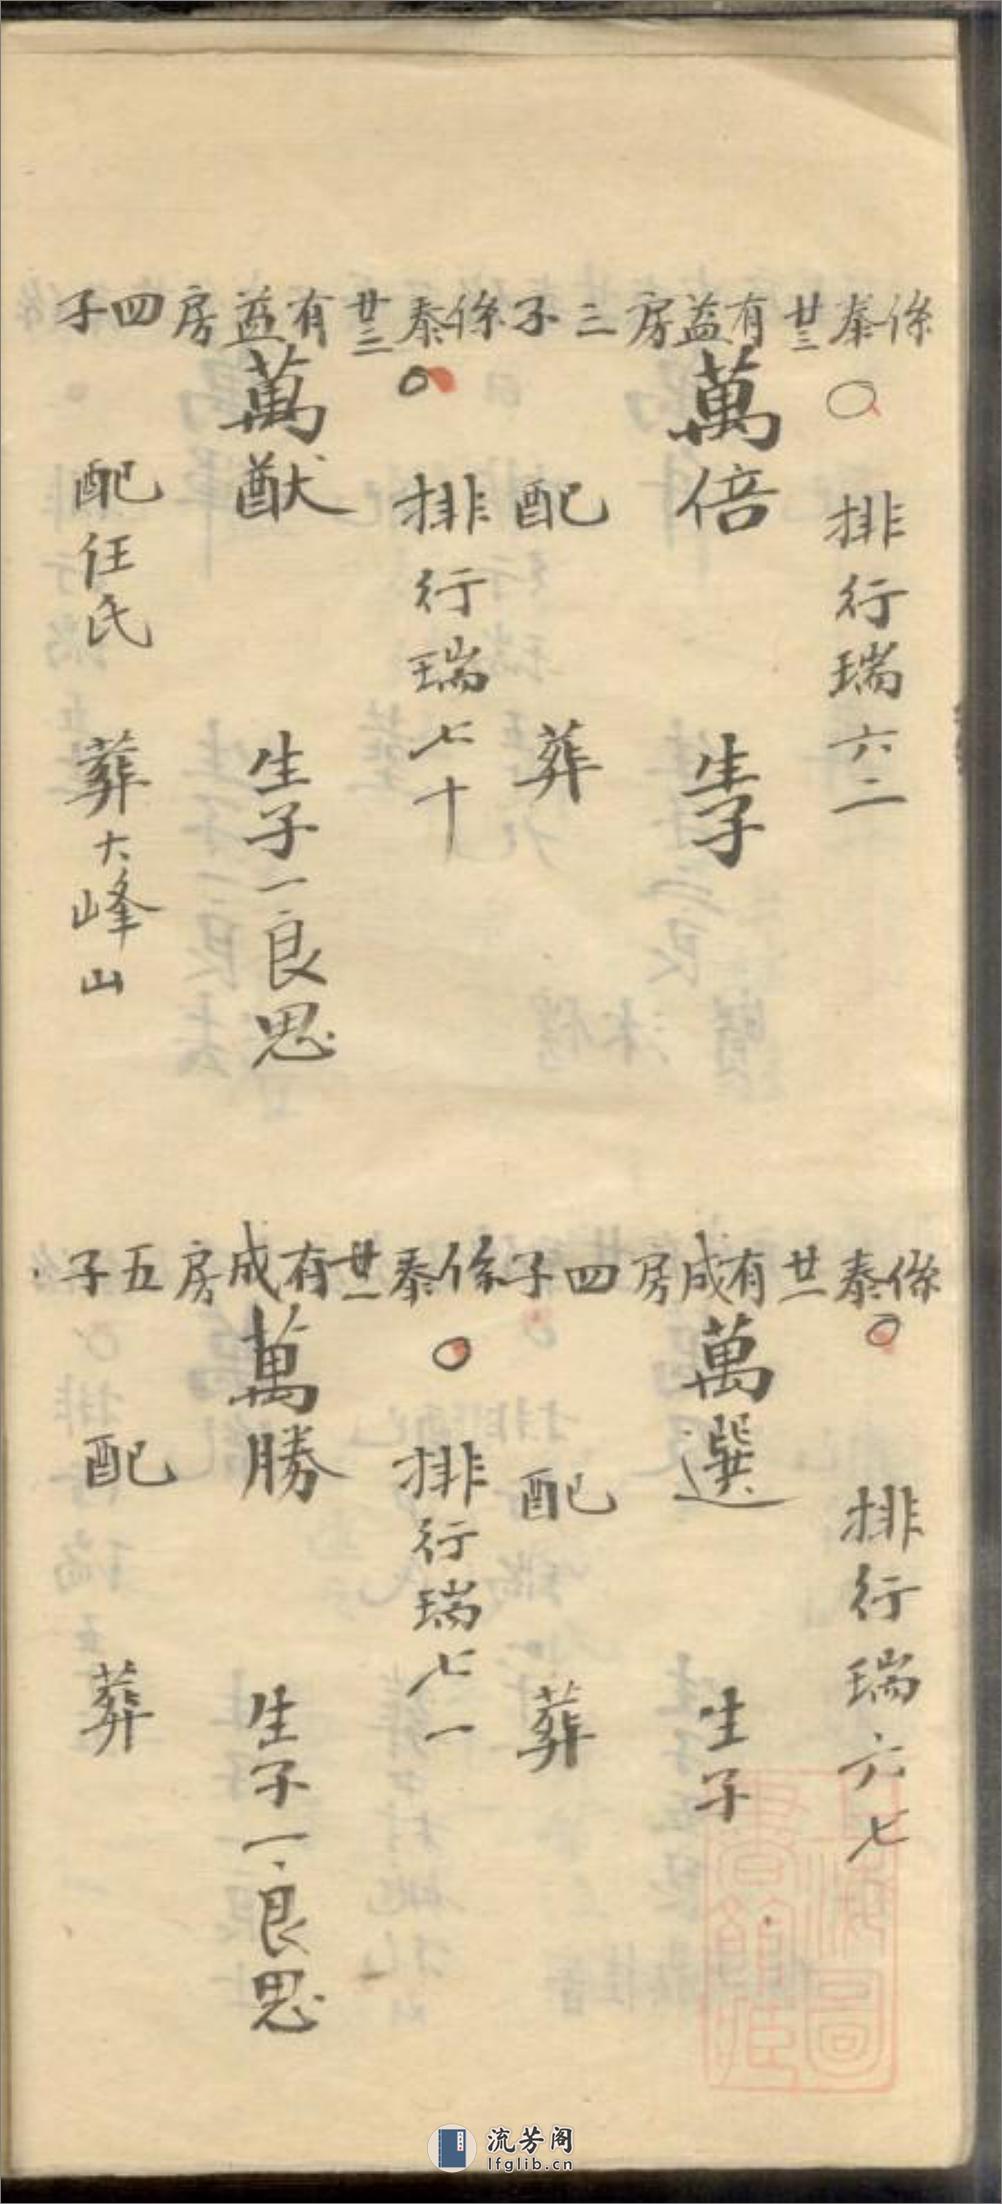 係泰廿三有益房三子
排行瑞六二
萬倍 生子
配 葬
係泰廿三有益房四子
排行瑞七十
萬猷 生子一良思
配任氏 葬大峰山
係泰廿一有成房四子
排行瑞六七
萬選 生子
配 葬
係泰廿一有成房五子
排行瑞七一
萬勝 生子一良思
配 葬
上海圖書館藏
流芳阁
lfglib.cn